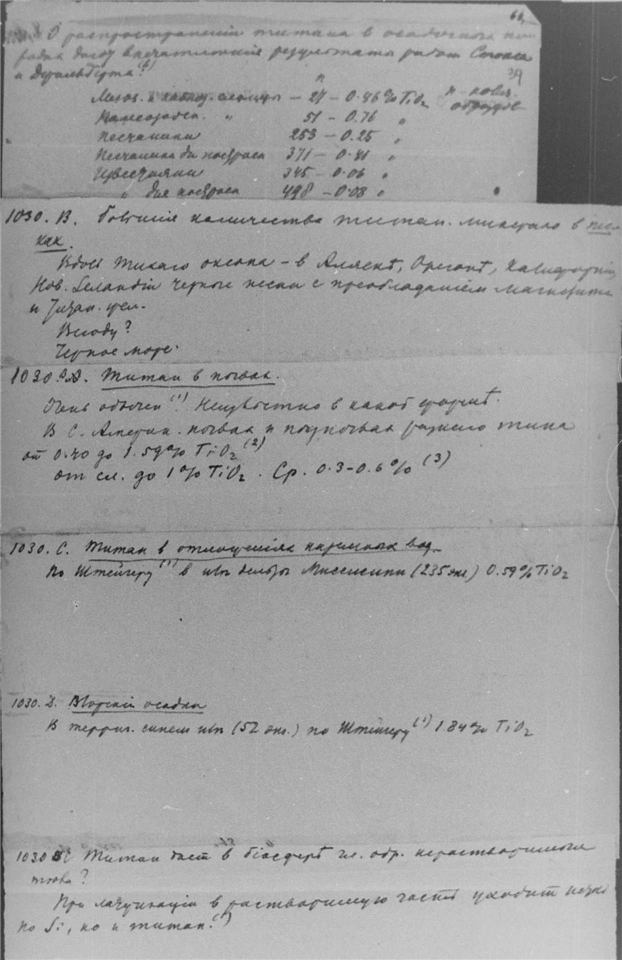 60.
О распространении титана в осадочных
дают впечатление результаты работ Стокса
и
Мезоз. и кайноз. сланцы – 27 – 0.46% TiO₂
Палеозойск. " 51 – 0.76 "
Песчаники 253 – 0.25 "
Песчаники для постройки 371 – 0.41 "
Известняки 345 – 0.06 "
" для постройки 498 – 0.08 "
1030. В. количества титан. минерало в пес-
ках.
Вдоль Тихаго океана – в Аляскѣ, Орегонѣ, Калифорніи,
Нов. Зеландіи черные пески с преобладаніем магнетита
и титан. жел.
Всюду?
Черное море.
1030. Титан в почвах.
Очень обычен (1). Неизвѣстно в какой формѣ.
В С. Америк. почвах и подпочвах разнаго типа
от 0.40 до 1.59% TiO₂ (2)
от сл. до 1% TiO₂. Ср. 0.3–0.6% (3)
1030. С. Титан в отложеніях наземных вод.
По Штейгеру (1) в илѣ дельты Миссисипи (235 экз.) 0.59% TiO₂
1030. D. Морскіе осадки
В терриг. синем илѣ (52 экз.) по Штейгеру (1) 1.84% TiO₂
1030 Титан дает в біосферѣ гл. обр. нерастворимыя
тѣла?
При латеризаціи в растворимую часть уходит не
но Si, но и титан. (1)